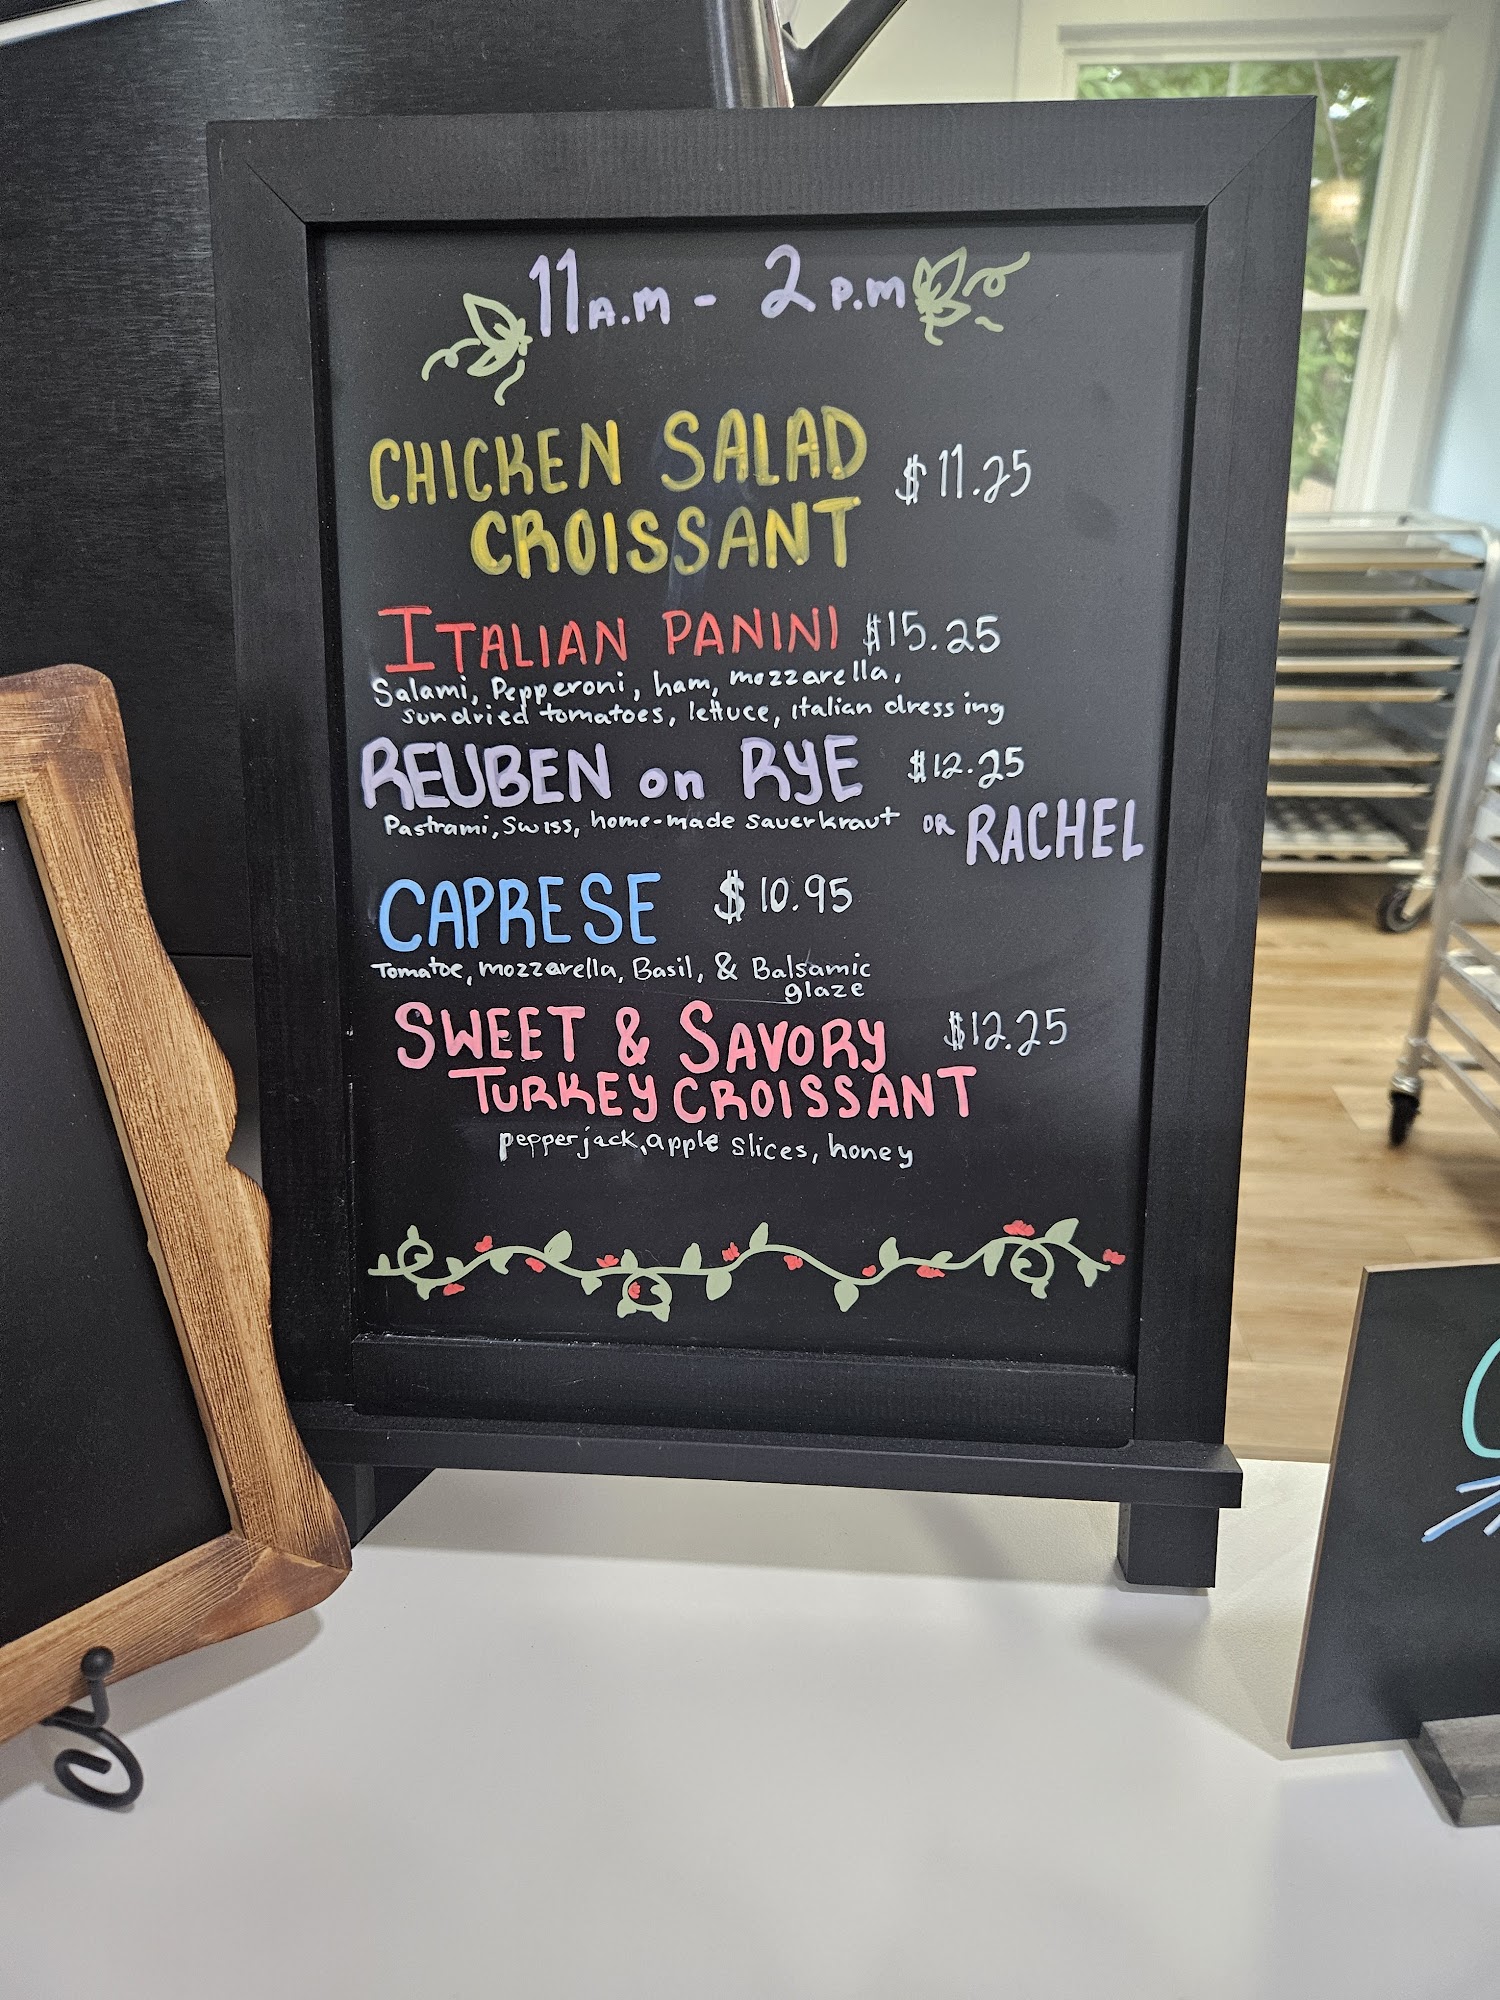 11 A.M - 2 P.M
CHICKEN SALAD $11.25
CROISSANT
ITALIAN PANINI $15.25
Salami, Pepperoni, ham, mozzarella,
sundried tomatoes, lettuce, italian dressing
REUBEN on RYE $12.25
Pastrami, Swiss, home-made sauerkraut OR RACHEL
CAPRESE $10.95
Tomatoe, mozzarella, Basil, & Balsamic
glaze
SWEET & SAVORY $12.25
TURKEY CROISSANT
pepperjack, apple slices, honey